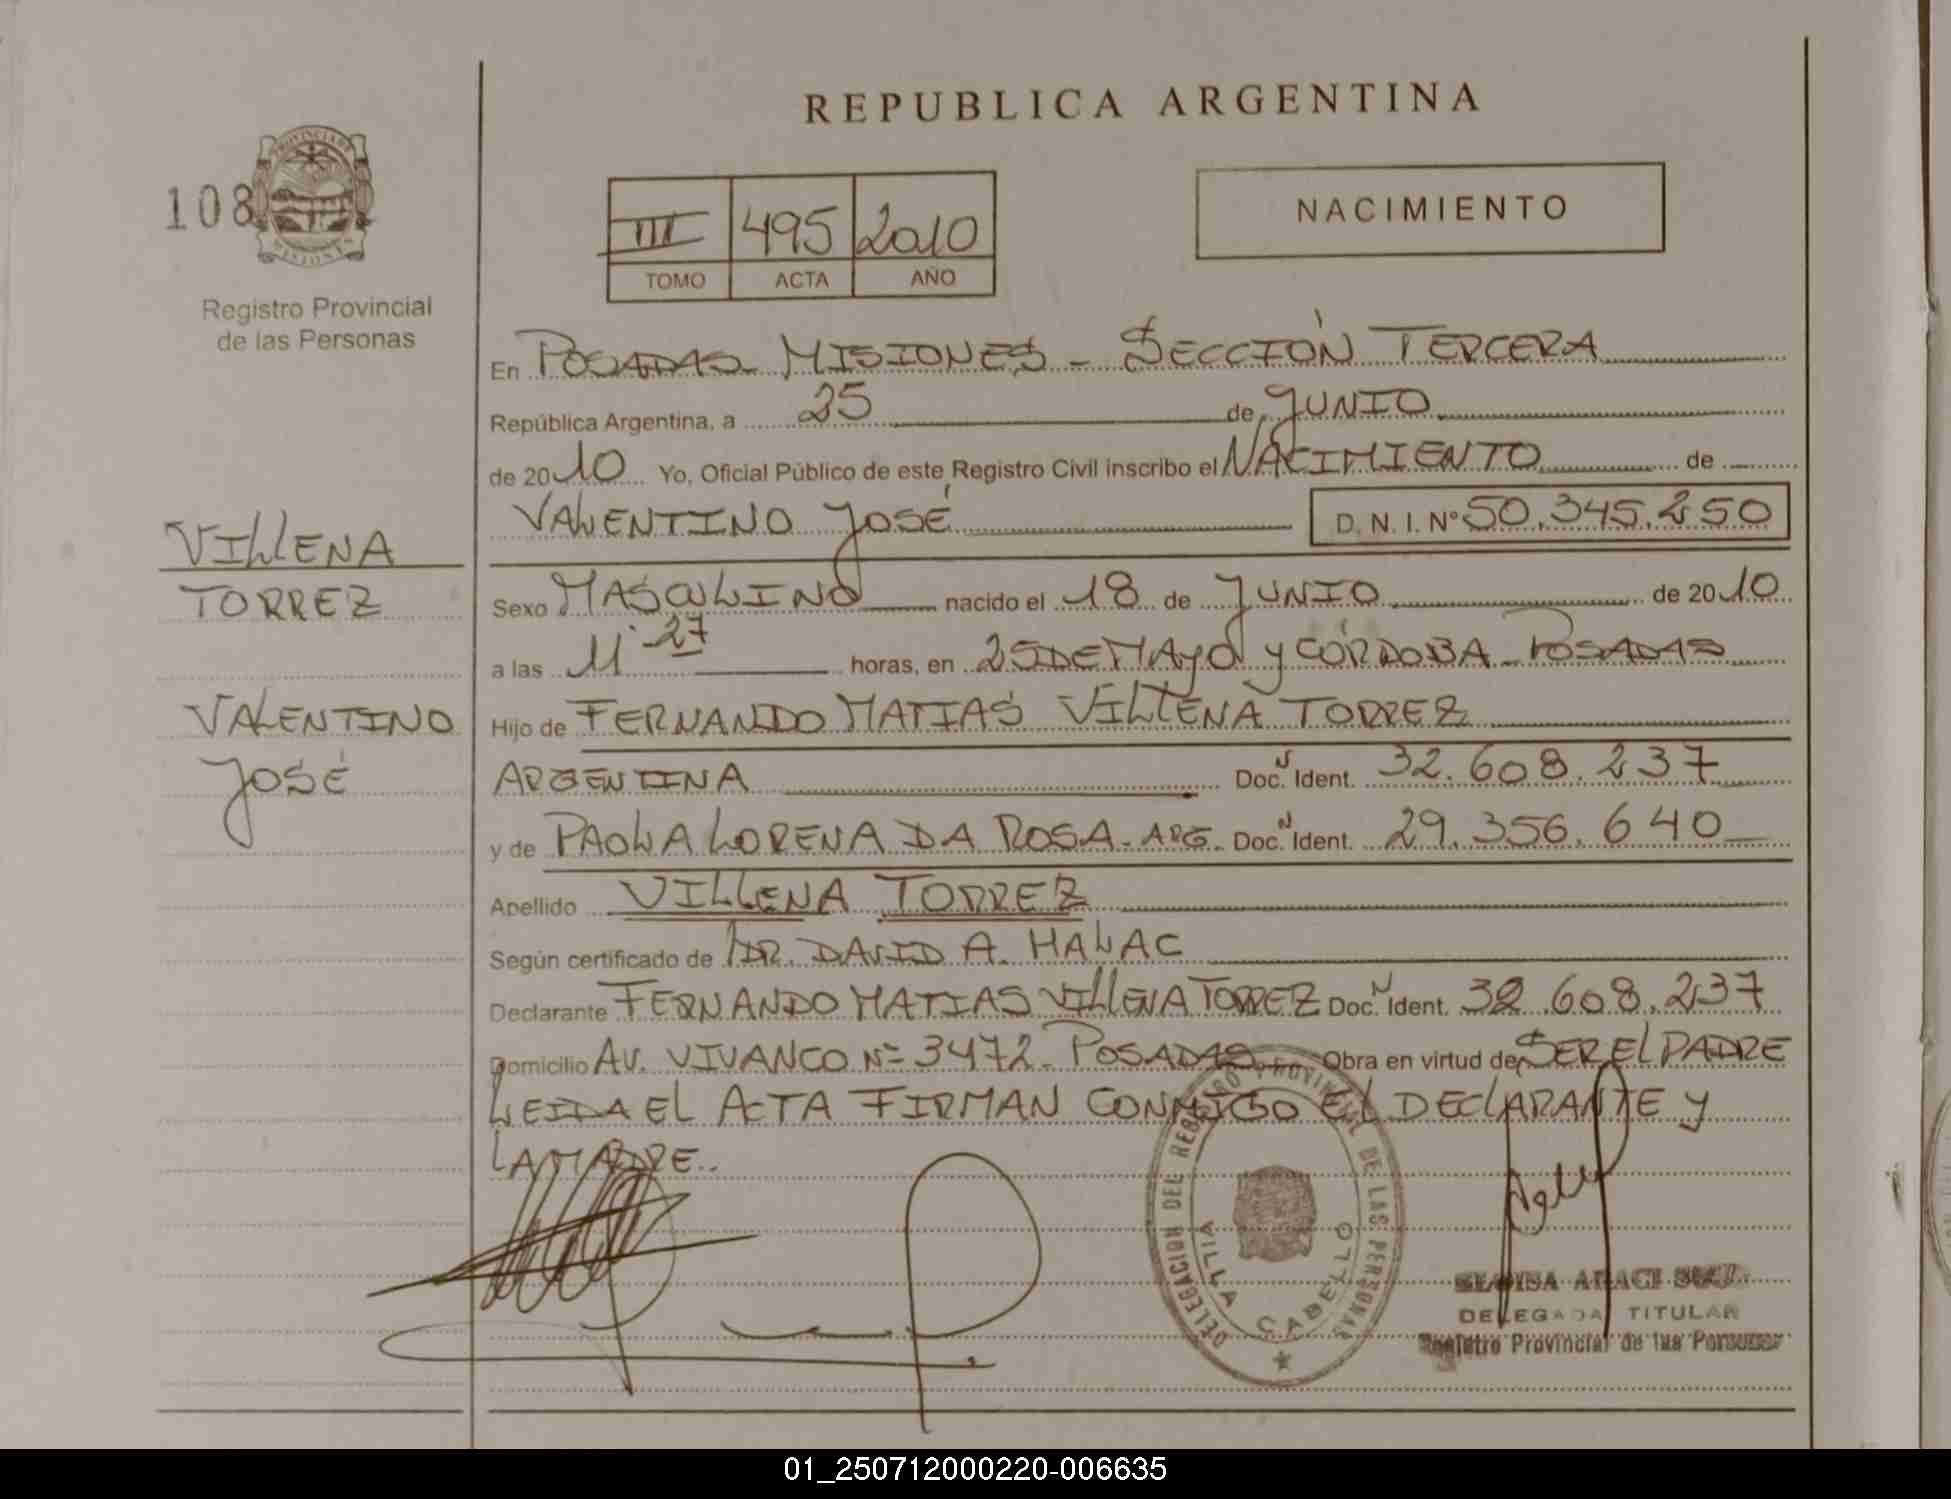 REPUBLICA ARGENTINA
108
PROVINCIA DE MISIONES
Registro Provincial
de las Personas
III 495 2010
TOMO ACTA AÑO
NACIMIENTO
En POSADAS MISIONES - SECCIÓN TERCERA
República Argentina, a 25 de JUNIO
de 2010 Yo, Oficial Público de este Registro Civil inscribo el NACIMIENTO de
VALENTINO JOSÉ D. N. I. Nº 50.345.250
VILLENA
TORREZ
VALENTINO
JOSÉ
Sexo MASCULINO nacido el 18 de JUNIO de 2010
a las 11.27 horas, en 25 DE MAYO y CÓRDOBA - POSADAS
Hijo de FERNANDO MATIAS VILLENA TORREZ
ARGENTINA Doc. N Ident. 32.608.237
y de PAOLA LORENA DA ROSA - ARG. Doc. N Ident. 29.356.640
Apellido VILLENA TORREZ
Según certificado de DR. DAVID A. HALAC
Declarante FERNANDO MATIAS VILLENA TORREZ Doc. N Ident. 32.608.237
Domicilio AV. VIVANCO Nº 3472 - POSADAS Obra en virtud de SER EL PADRE
LEIDA EL ACTA FIRMAN CONMIGO EL DECLARANTE y
LA MADRE.
DELEGACION DEL REGISTRO PROVINCIAL DE LAS PERSONAS
VILLA CABELLO
ARACI
DELEGADA TITULAR
Registro Provincial de las Personas
01_250712000220-006635